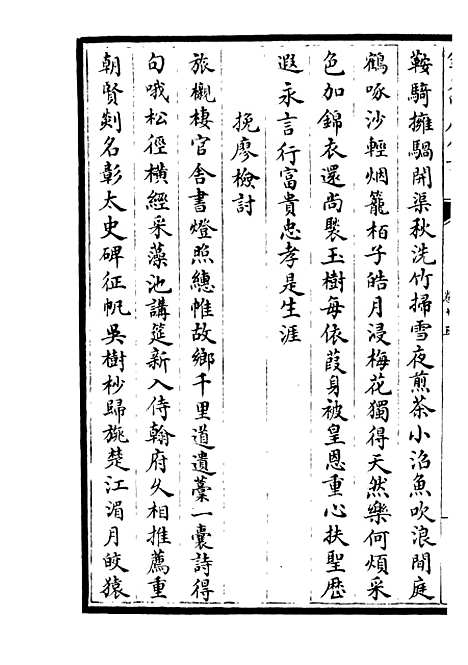 鞍騎擁騶開渠秋洗竹掃雪夜煎茶小沼魚吹浪閒庭
鶴啄沙輕烟籠栢子皓月浸梅花獨得天然樂何煩采
色加錦衣還尚褧玉樹每依葭身被皇恩重心扶聖歴
遐永言行富貴忠孝是生涯
挽廖檢討
旅櫬棲官舍書燈照繐帷故鄉千里道遺藁一囊詩得
句哦松徑横經采藻池講筵新入侍翰府久相推薦重
朝賢剡名彰太史碑征帆吳樹杪歸旐楚江湄月皎猿